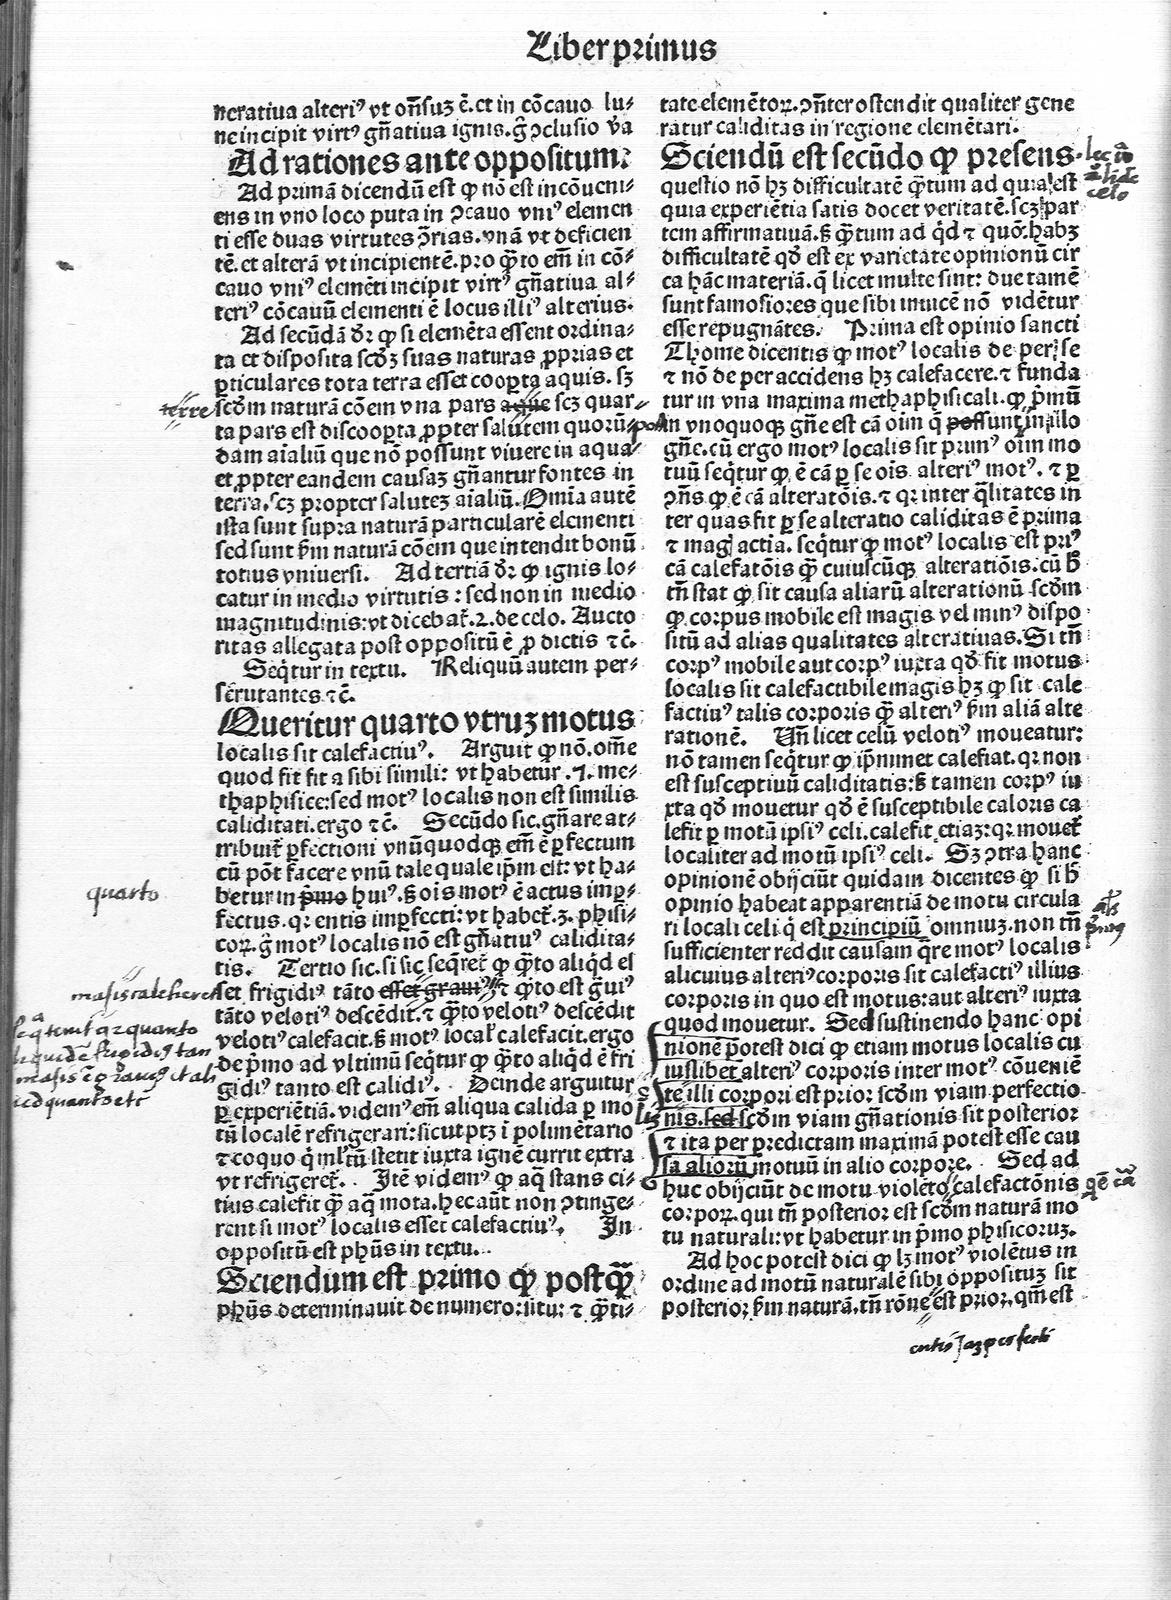 Liber primus
neratiua alteriꝰ vt oñsuꝫ ē. et in cōcauo lu⸗
ne incipit virtꝰ gñatiua ignis. g̃ ↄclusio ṽa
Ad rationes ante oppositum:
Ad primā dicendū est ꝙ nō est incōueni⸗
ens in vno loco puta in ↄcauo vniꝰ elemen
ti esse duas virtutes ↄ̃rias. vnā vt deficien
tē. et alterā vt incipientē. pro q̃to em̄ in cō⸗
cauo vniꝰ elemēti incipit virtꝰ gñatiua al⸗
teriꝰ cōcauū elementi ē locus illiꝰ alterius.
Ad secūdā dr̄ ꝙ si elemēta essent ordina⸗
ta et disposita scd̓ꝫ suas naturas ꝓprias et
ꝑticulares tota terra esset cooꝑta aquis. sꝫ
terre
scd̓m naturā cōem vna pars aque scꝫ quar⸗
ta pars est discooꝑta ꝓpter salutem quorū⸗
dam aīaliū que nō possunt viuere in aqua⸗
et ꝓpter eandem causaꝫ gñantur fontes in
terra. scꝫ propter saluteꝫ aīaliū. Omīa autē
ista sunt supra naturā particularē elementi
sed sunt ẜm naturā cōem que intendit bonū
totius vniuersi. Ad tertiā dr̄ ꝙ ignis lo⸗
catur in medio virtutis : sed non in medio
magnitudinis: vt dicebat̄. 2. de celo. Aucto
ritas allegata post oppositū ē ꝓ dictis ⁊c̄.
Seq̄tur in textu. Reliquū autem per⸗
scrutantes ⁊c̄.
Queritur quarto vtruꝫ motus
localis sit calefactiuꝰ. Arguit̄ ꝙ nō. om̄e
quod fit fit a sibi simili: vt habetur .7. me⸗
thaphisice: sed motꝰ localis non est similis
caliditati. ergo ⁊c̄. Secūdo sic. gñare at⸗
tribuit̄ ꝑfectioni vnūquodqꝫ em̄ ē ꝑfectum
cū pōt facere vnū tale quale ip̄m est: vt ha⸗
quarto
betur in p̄mo huiꝰ. ẜ oīs motꝰ ē actus imꝑ⸗
fectus. qꝛ entis imꝑfecti: vt habet̄. 3. phisi⸗
coꝝ. g̃ motꝰ localis nō est gñatiuꝰ calidita⸗
tis. Tertio sic. si sic seq̄ret̄ ꝙ q̃to aliq̄d es
set frigidiꝰ tāto esset grauiꝰ ⁊ q̃to est g̃uiꝰ
tāto velotiꝰ descēdit. ⁊ q̃to velotiꝰ descēdit
velotiꝰ calefacit. ẜ motꝰ local̓ calefacit. ergo
de p̄mo ad vltimū seq̄tur ꝙ q̃to aliq̄d ē fri
gidiꝰ tanto est calidiꝰ. Deinde arguitur
ꝑ experiētiā. videmꝰ em̄ aliqua calida ꝑ mo
tū localē refrigerari: sicut ptꝫ ī polimētario
⁊ coquo q̄ ml̓tū stetit iuxta ignē currit extra
vt refrigeret̄. Itē videmꝰ ꝙ aq̄ stans ci⸗
tius calefit ꝙ̃ aq̄ mota. hec aūt non ↄtinge⸗
rent si motꝰ localis esset calefactiuꝰ. In
oppositū est ph̄us in textu.
Sciendum est primo ꝙ postꝙ̃
ph̄us determinauit de numero: situ: ⁊ q̃ti⸗
tate elemētoꝝ. ↄñter ostendit qualiter gene
ratur caliditas in regione elemētari.
Sciendū est secūdo ꝙ presens
questio nō hꝫ difficultatē q̃tum ad quia est
quia experiētia satis docet veritatē. scꝫ par
tem affirmatiuā. ẜ q̃tum ad q̄d ⁊ quō. habꝫ
difficultatē qd̓ est ex varietate opinionū cir
ca hāc materiā. q̄ licet multe sint: due tamē
sunt famosiores que sibi inuicē nō vidētur
esse repugnātes. Prima est opinio sancti
Thome dicentis ꝙ motꝰ localis de per se
⁊ nō de per accidens hꝫ calefacere. ⁊ funda
tur in vna maxima methaphisicali. ꝙ p̄mū
in vnoquoqꝫ gn̄e est cā oīm q̄ possunt in illo
gn̄e. cū ergo motꝰ localis sit primꝰ oīm mo
tuū seq̄tur ꝙ ē cā ꝑ se oīs alteriꝰ motꝰ. ⁊ ꝑ
ↄñs ꝙ ē cā alteratōis. ⁊ qꝛ inter q̄litates in
ter quas fit ꝑ se alteratio caliditas ē prima
⁊ mag actia. seq̄tur ꝙ motꝰ localis est priꝰ
cā calefatōis ꝙ̃ cuiuscūqꝫ alteratiōis. cū h̄
tn̄ stat ꝙ sit causa aliarū alterationū scd̓m
ꝙ corpus mobile est magis vel minꝰ dispo
situ ad alias qualitates alteratiuas. Si tn̄
corpꝰ mobile aut corpꝰ iuxta qd̓ fit motus
localis sit calefactibile magis hꝫ ꝙ sit cale
factiuꝰ talis corporis ꝙ̃ alteriꝰ ẜm aliā alte
rationē. Vn̄ licet celū velotiꝰ moueatur:
nō tamen seq̄tur ꝙ ip̄mmet calefiat. qꝛ non
est susceptiuū caliditatis: ẜ tamen corpꝰ iu
xta qd̓ mouetur qd̓ ē susceptibile caloris ca
lefit ꝑ motū ipsiꝰ celi. calefit etiaꝫ: qꝛ mouet̄
localiter ad motū ipsiꝰ celi. Sꝫ ↄtra hanc
opinionē obijciūt quidam dicentes ꝙ si h̄
opinio habeat apparentiā de motu circula
ri locali celi q̄ est principiū omniuꝫ. non tn̄
sufficienter reddit causam q̄re motꝰ localis
alicuius alteriꝰ corporis sit calefactiꝰ illius
corporis in quo est motus: aut alteriꝰ iuxta
quod mouetur. Sed sustinendo hanc opi
nionē potest dici ꝙ etiam motus localis cu
iuslibet alteriꝰ corporis inter motꝰ cōueniē
te illi corpori est prior scd̓m viam perfectio
nis. sed scd̓m viam gñationis sit posterior
⁊ ita per predictam maximā potest esse cau
sa aliorū motuū in alio corpore. Sed ad
huc obijciūt de motu violēto calefactōnis
corpoꝝ. qui tn̄ posterior est scd̓m naturā mo
tu naturali: vt habetur in p̄mo phisicoruꝫ.
Ad hoc potest dici ꝙ lꝫ motꝰ violētus in
ordine ad motū naturalē sibi oppositus sit
posterior ẜm naturā. tn̄ rōne est prior. qm̄ est